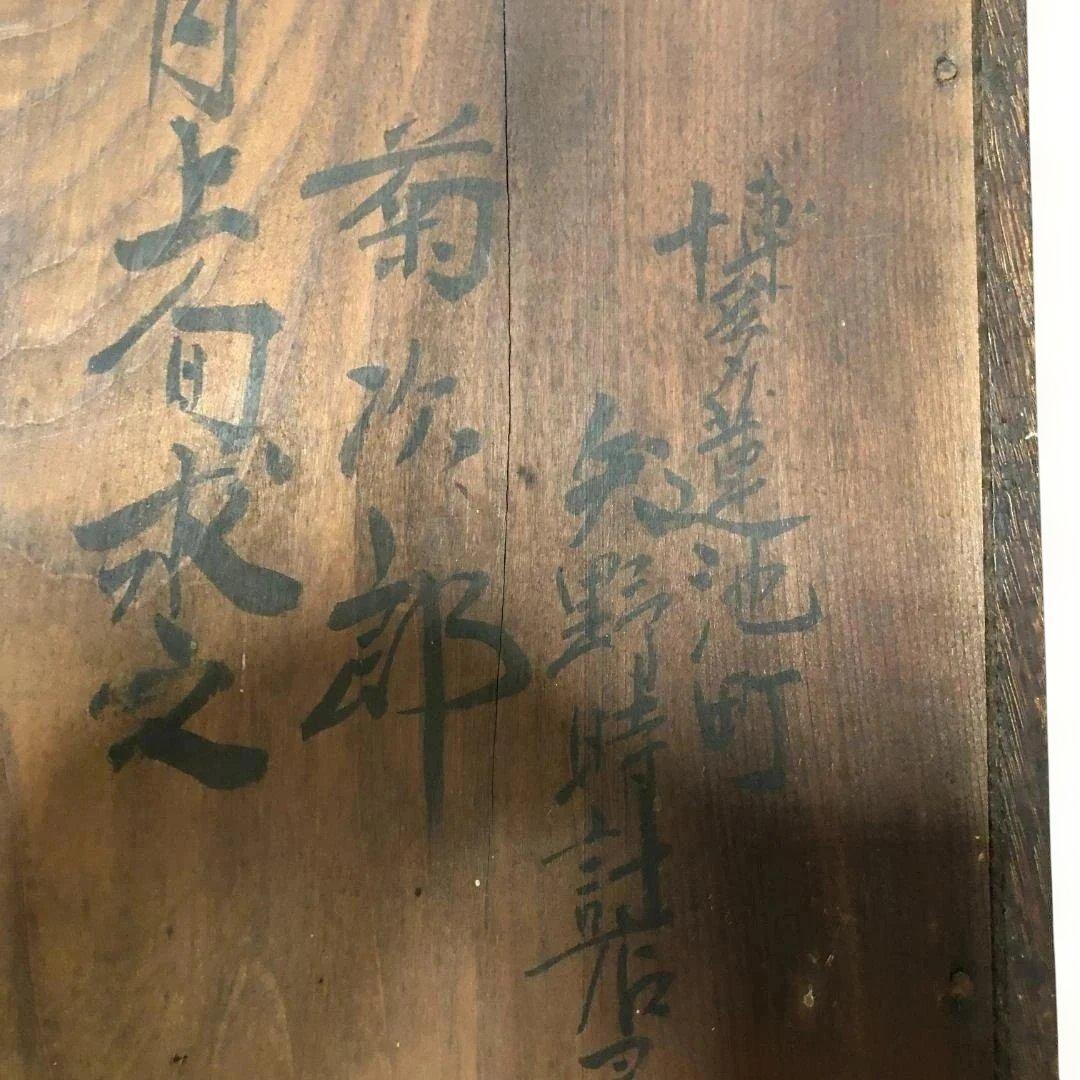 博多蓮池町
矢野時計店ヨ
菊次郎
月上旬求之